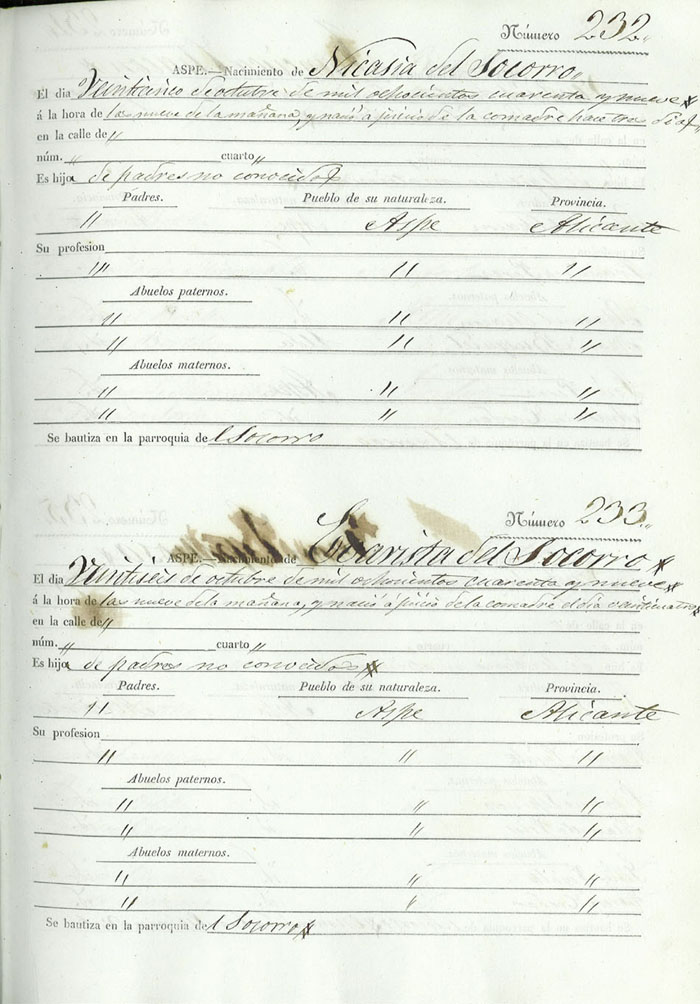 Número 232
ASPE.—Nacimiento de Nicasia del Socorro
El dia Veinticinco de octubre de mil ochocientos cuarenta y nueve
á la hora de las nueve de la mañana, y nació á juicio de la comadre hace tres dias
en la calle de "
núm. " cuarto "
Es hija de padres no conocidos
Padres. Pueblo de su naturaleza. Provincia.
" Aspe Alicante
Su profesion
" " "
Abuelos paternos.
" " "
" " "
Abuelos maternos.
" " "
" " "
Se bautiza en la parroquia del Socorro
Número 233
ASPE.—Nacimiento de Evarista del Socorro
El dia Veintiseis de octubre de mil ochocientos cuarenta y nueve
á la hora de las nueve de la mañana, y nació á juicio de la comadre el dia veinticuatro
en la calle de "
núm. " cuarto "
Es hija de padres no conocidos
Padres. Pueblo de su naturaleza. Provincia.
" Aspe Alicante
Su profesion
" " "
Abuelos paternos.
" " "
" " "
Abuelos maternos.
" " "
" " "
Se bautiza en la parroquia del Socorro